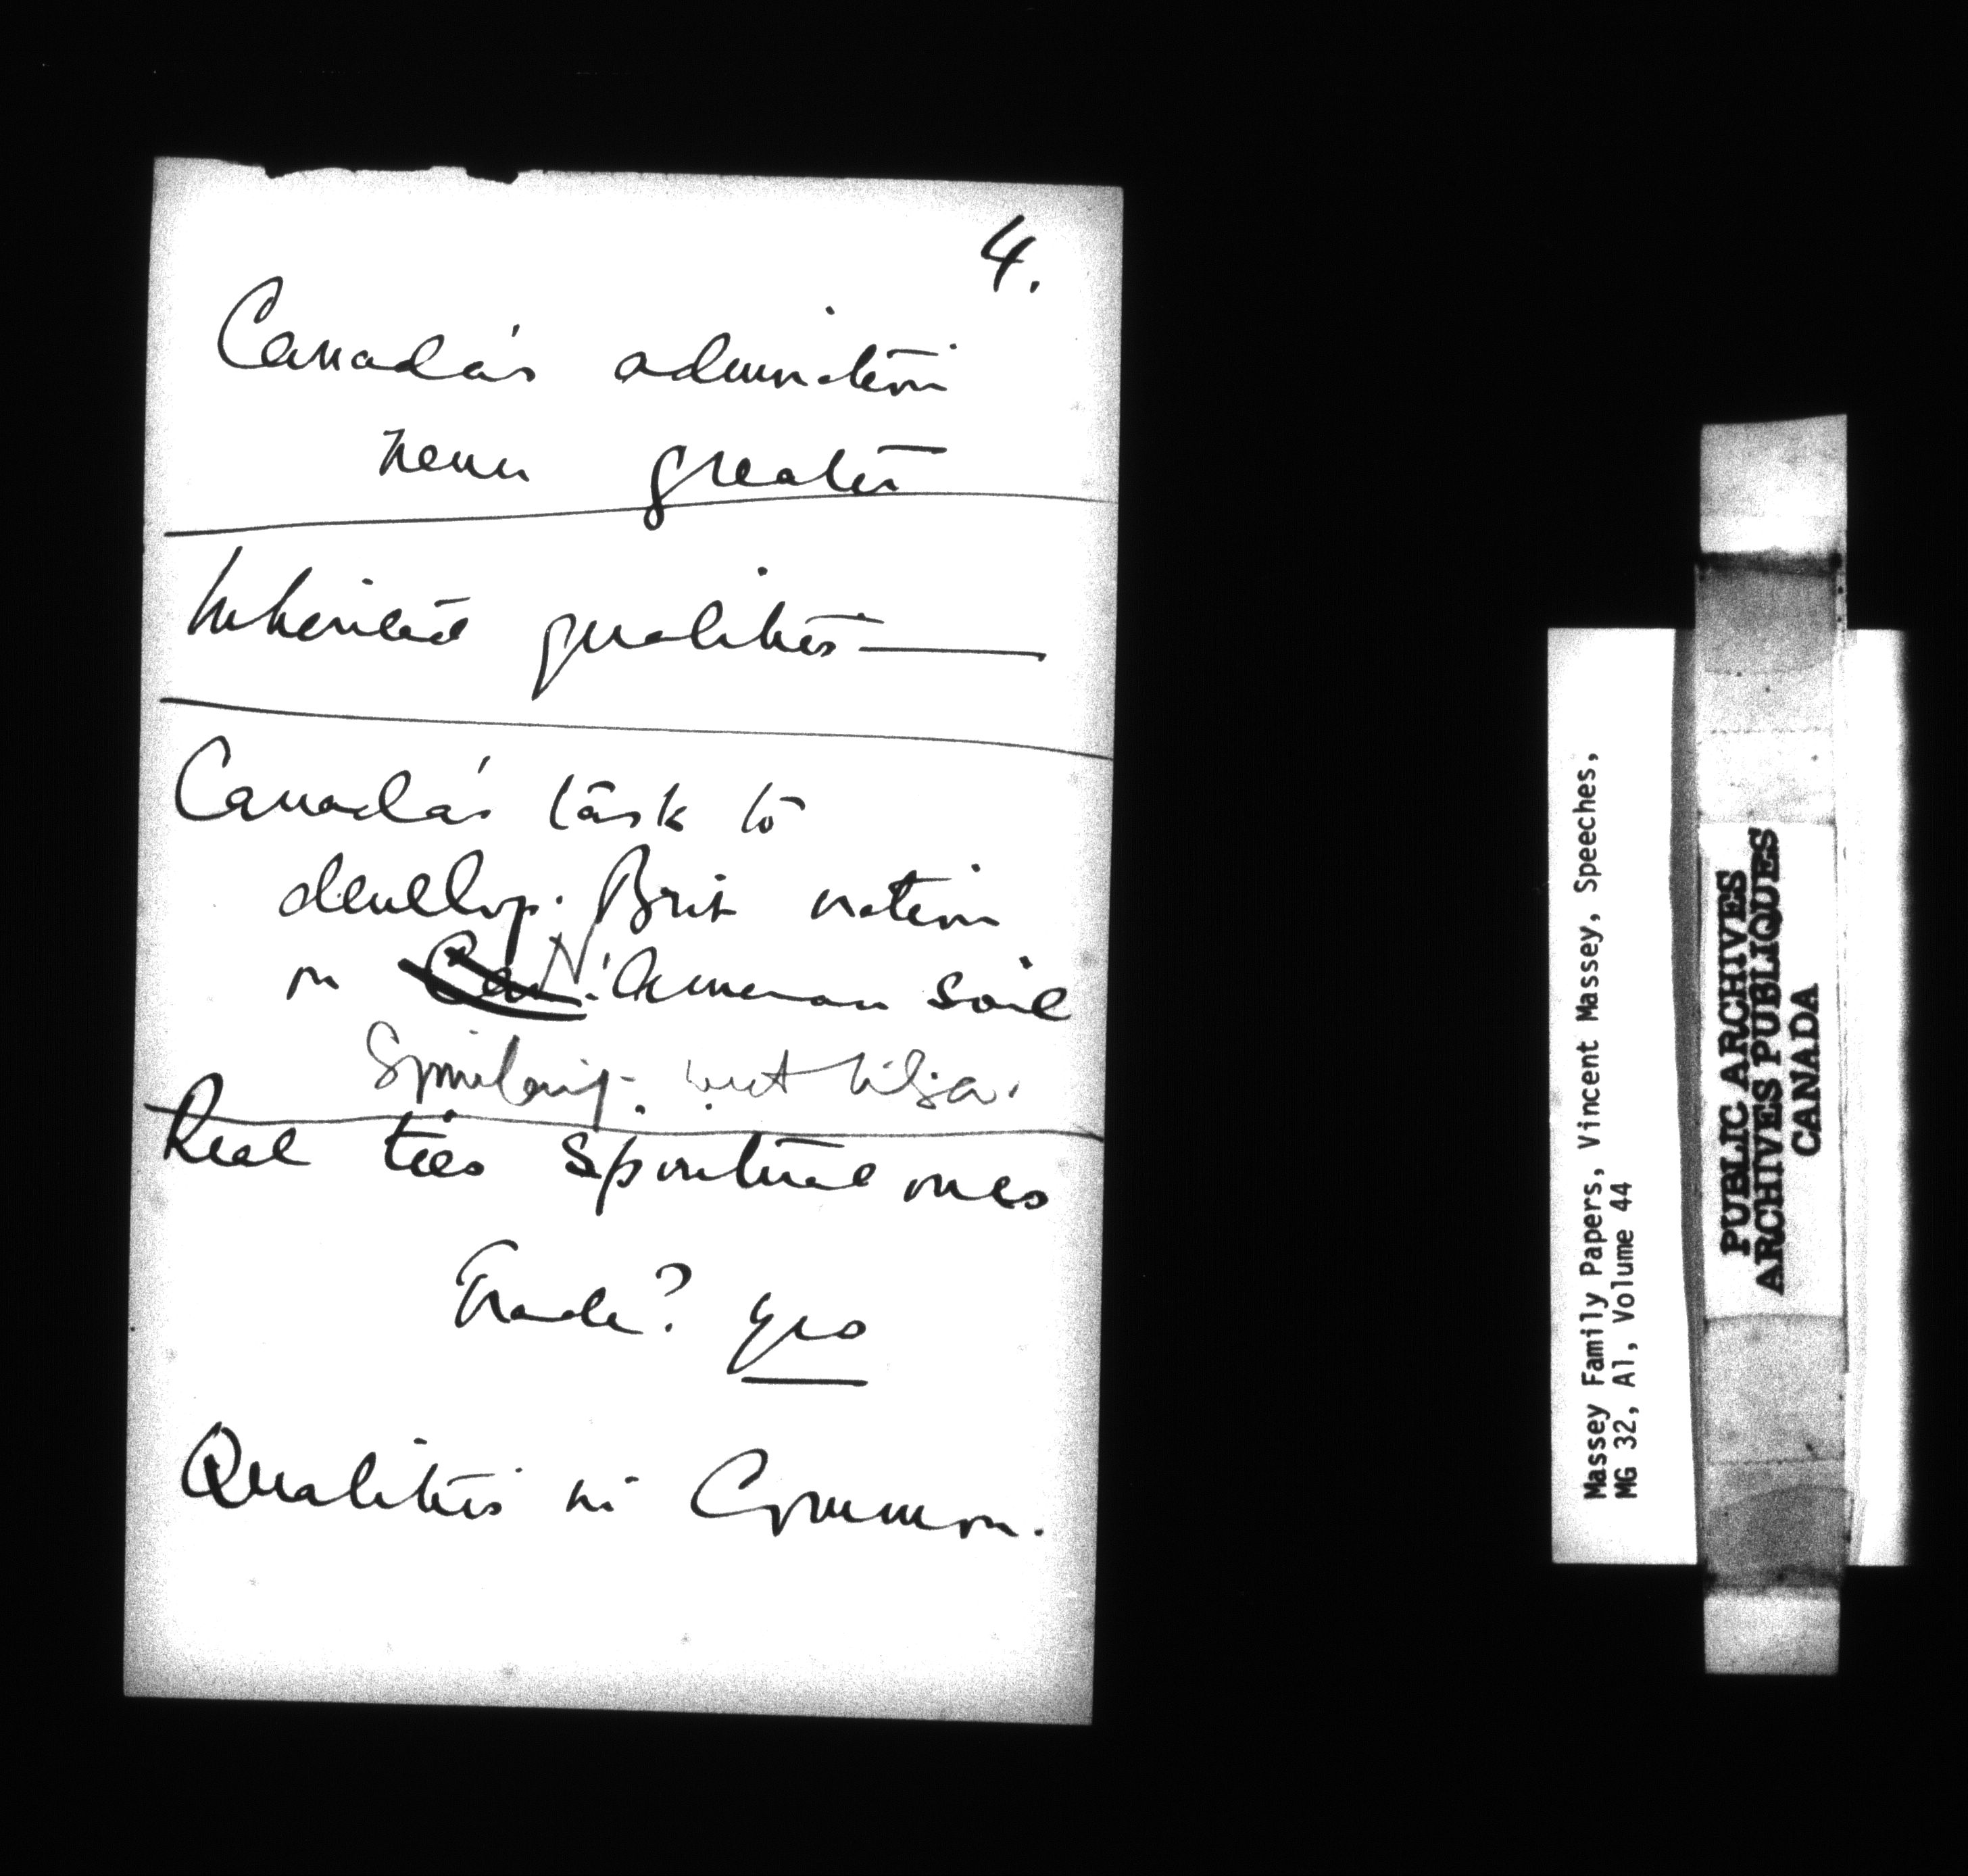 4.
Canada's admiration
never greater
Inherited qualities —
Canada's task to
develop. Brit nation
on Can N. American soil
Similarity. but
Real ties spiritual ones
Trade? yes
Qualities in Common.
Massey Family Papers, Vincent Massey, Speeches,
MG 32, A1, Volume 44
PUBLIC ARCHIVES
ARCHIVES PUBLIQUES
CANADA